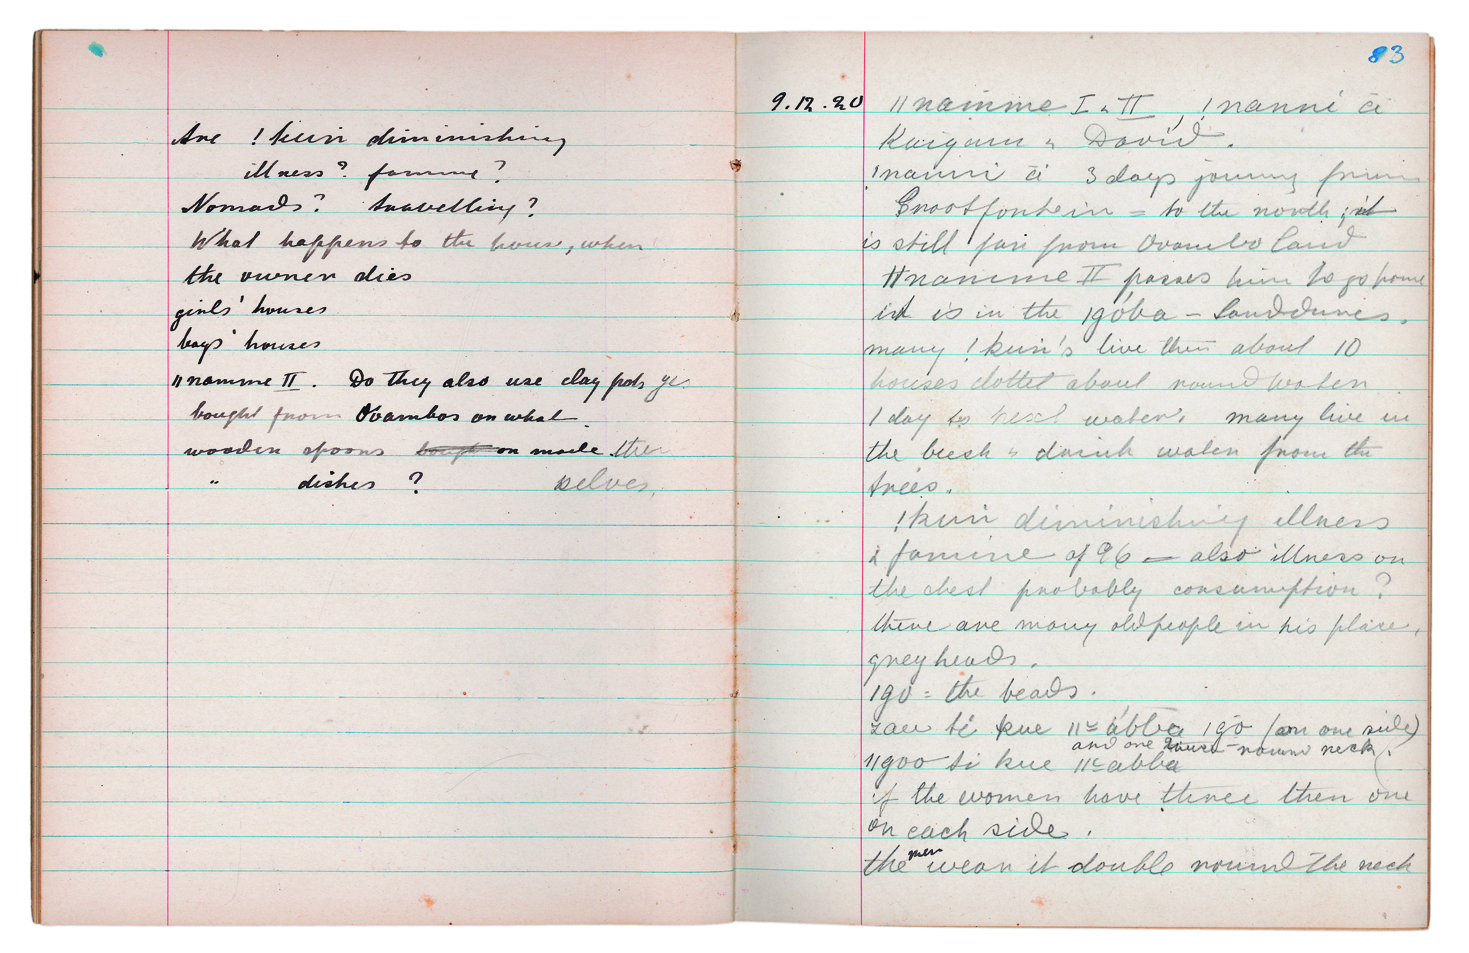 Are !kun diminishing
illness? famine?
Nomads? travelling?
What happens to the house, when
the owner dies
girls' houses
boys' houses
ǁnamme II. Do they also use clay pots yes
bought from Ovambos or what
wooden spoons bought or made them
" dishes ? selves.
83
9.12.20 ǁnamme I & II, !nanni či
Kaigam & David.
!nanni či 3 days journey from
Grootfontein = to the north; it
is still far from Ovambo land
ǁnamme II passes him to go home
it is in the ǀgóba – Sanddunes.
many !kun's live there about 10
houses dottet about round water
1 day to next water. many live in
the bush & drink water from the
trees.
!kun diminishing illness
& famine of 96 — also illness on
the chest probably consumption?
there are many old people in his place,
grey heads.
ǀgo = the beads.
zau ti kue ǁabba ǀgo (on one side)
and one round neck.
ǁgoo ti kue ǁabba
if the women have three then one
on each side.
the men wear it double round the neck